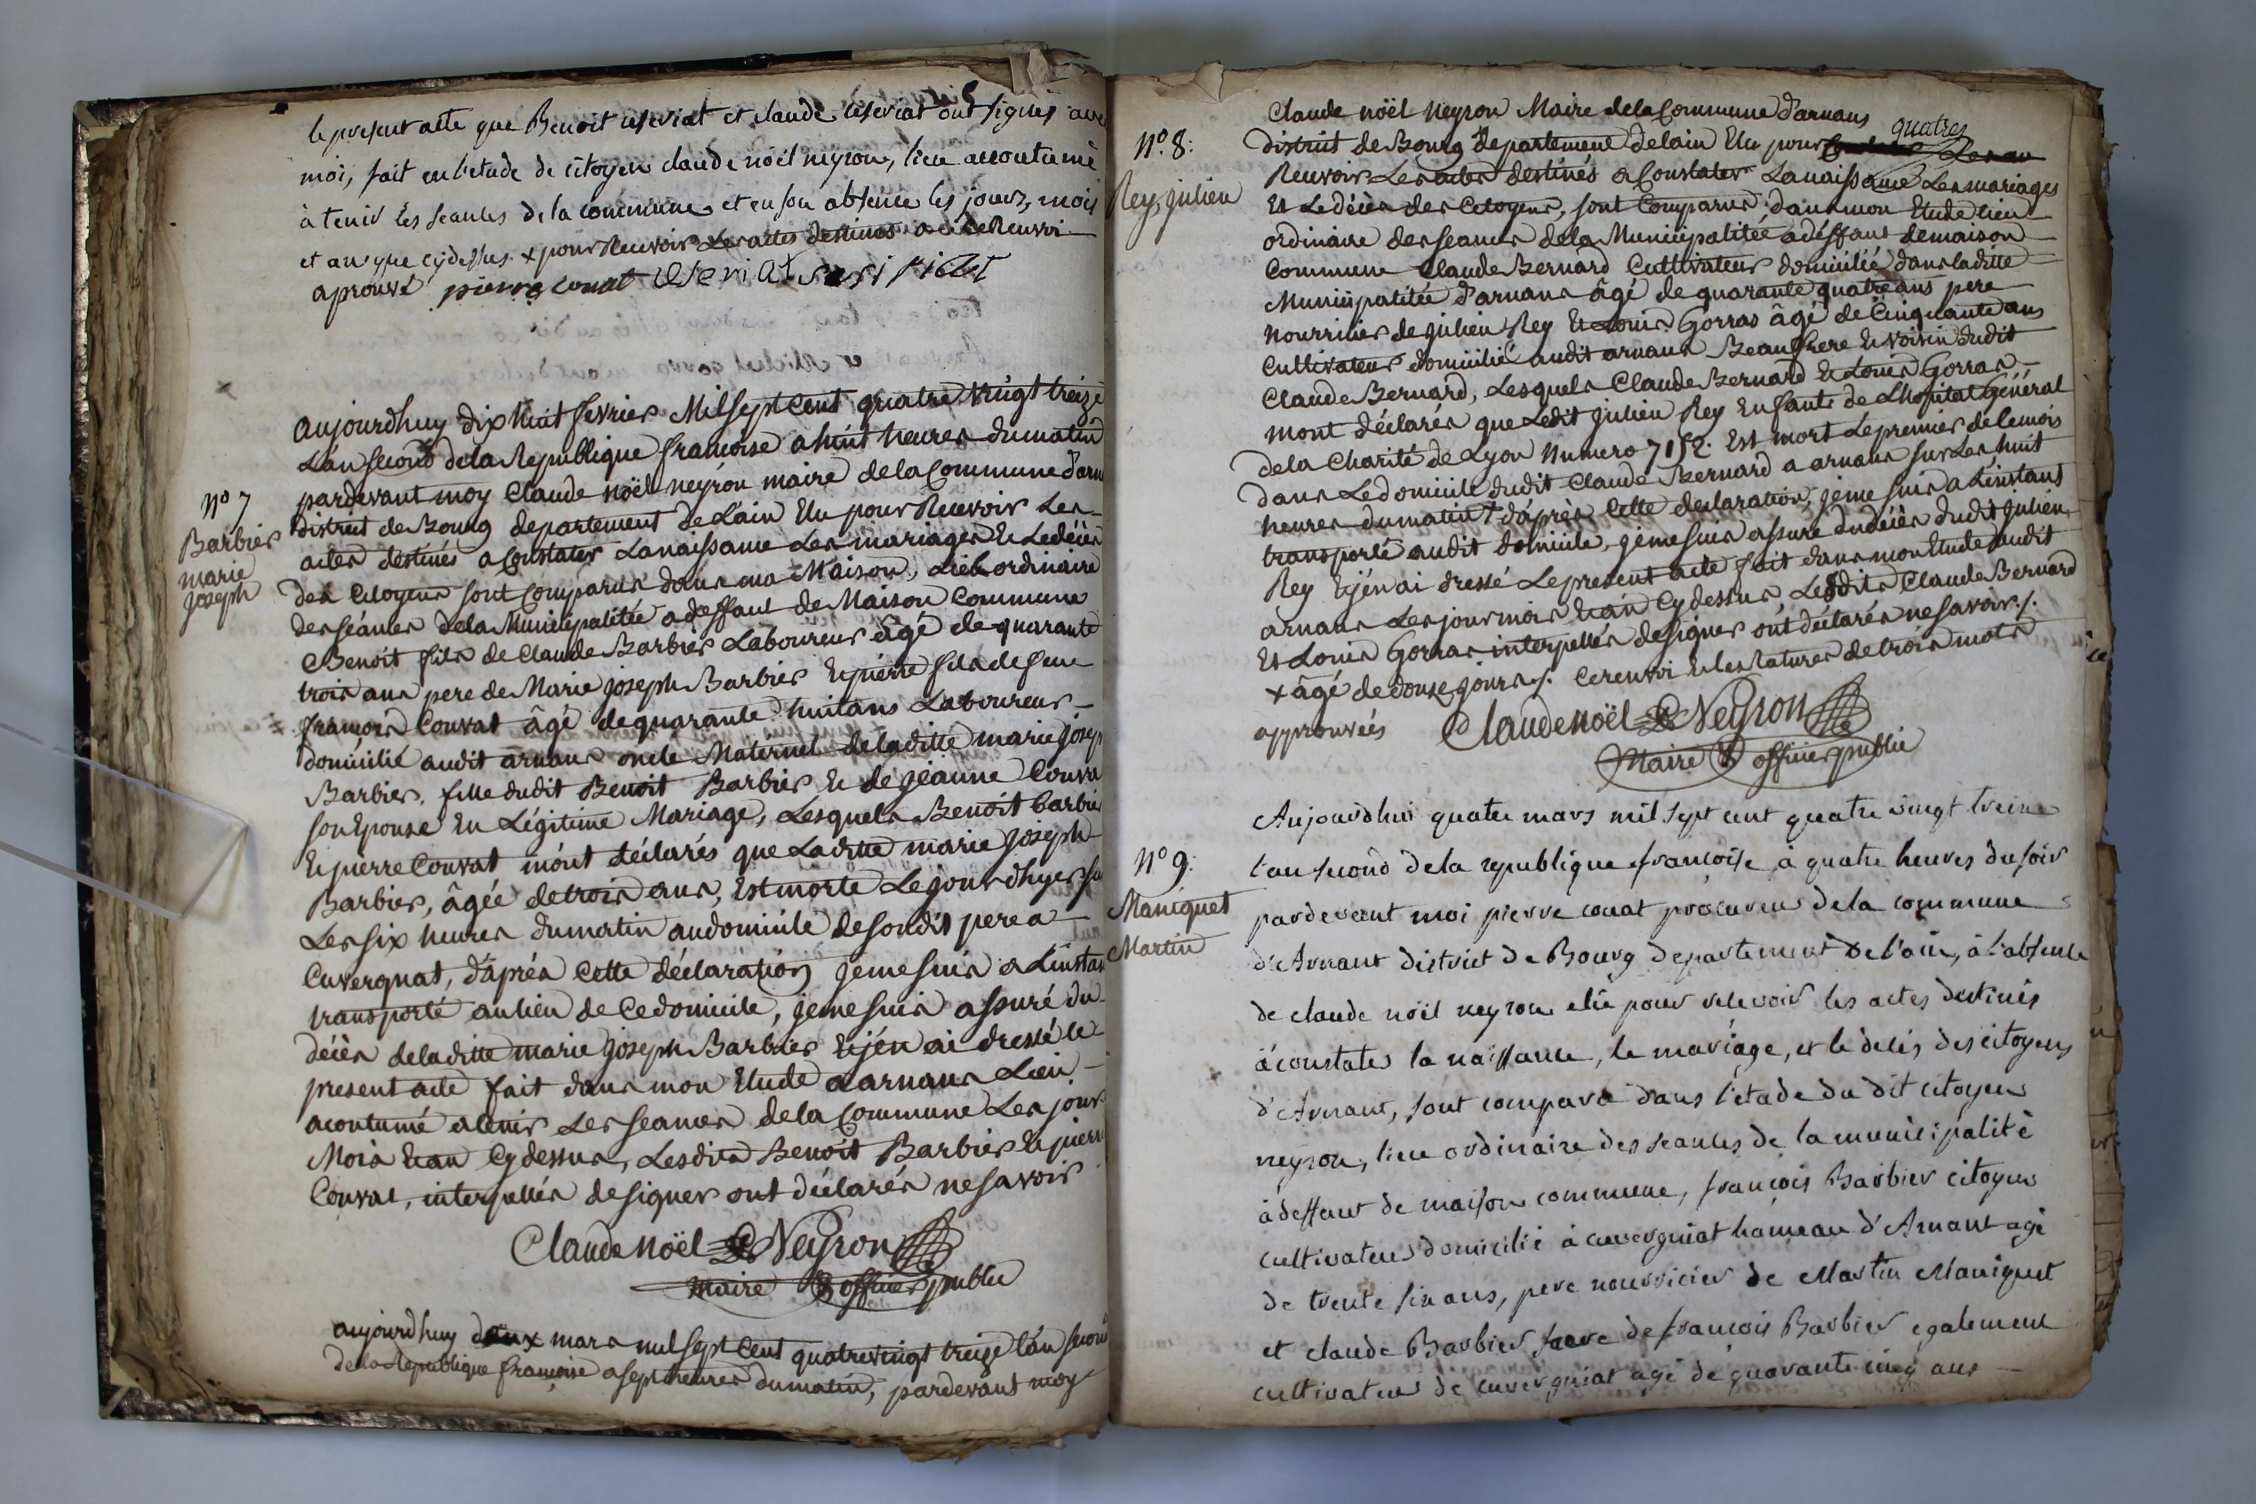 le present acte que Benoit useriat et claude useriat ont signés avec
moi, fait en l'etude de citoyen claude nöel neyron, lieu accoutumé
à tenir les seances de la commune et en son absence les jours, mois
et an que cydessus + pour Recevoir Les actes destinés a ce Renvoi
aprouvé pierre couat useriat
aujourdhuy dix huit fevrier Mil sept Cent quatre vingt treize
L'an second de la Republique francoise a huit heures du matin
pardevant moy Claude noël neyron maire de la Commune d'arn
district de Bourg departement de L'ain Elu pour Recevoir Les
N° 7
Barbier
marie
joseph
actes destinés a Constater La naissance Les mariages Et Le décès
des Citoyens sont Comparus dans ma Maison, Lieu ordinaire
des séances de la Municipalitée a deffaut de Maison Commune
Benoit fils de Claude Barbier Laboureur âgé de quarante
trois ans pere de Marie joseph Barbier Et pierre fils de feue
francois Couvat âgé de quarante huit ans Laboureur
domicilié audit arnans oncle Maternel de laditte marie josep
Barbier, fille dudit Benoit Barbier Et de jeanne Couva
son Epouse En Légitime Mariage, Lesquels Benoit Barbier
Et pierre Couvat m'ont déclarés que Laditte marie joseph
Barbier, âgée de trois ans, Est morte Le jour d'hyer su
Les six heures du matin au domicile de son dit pere a
Cuvergnat, d'après Cette déclaration je me suis a L'instan
transporté au lieu de Ce domicile, je me suis assuré du
décès de laditte marie joseph Barbier Et j'en ai dressé le
present acte fait dans mon Etude a arnans Lieu
acoutumé a tenir Les seances de la Commune Les jour
Mois Et an Cy dessus, Lesdits Benoit Barbier Et pierre
Couvat, interpellés de signer ont déclarés ne savoir
Claude noël Neyron
maire & officier public
aujourdhuy deux mars mil sept Cent quatre vingt treize l'an second
de la Republique francoise a sept heures du matin, pardevant moy
N°. 8:
Rey, julien
Claude noël neyron Maire de la Commune d'arnans
quatres
district de Bourg departement de lain Elu pour
Recevoir Les actes destinés a Constater La naissance Les mariages
Et Le décès des Citoyens, sont Comparus dans mon Etude lieu
ordinaire des seances de la Municipalitée a deffaut de maison
Commune Claude Bernard Cultivateur domiciliée dans laditte
Municipalitée d'arnans âgé de quarante quatre ans pere
nourricier de julien Rey Et Louis Gorras âgé de Cinquante ans
Cultivateur domicilié audit arnans Beaufrere Et voisin dudit
Claude Bernard, Lesquels Claude Bernard Et Louis Gorras
m'ont déclarés que Ledit julien Rey Enfants de L'hopital Général
de la Charité de Lyon numero 7152. Est mort Le premier de le mois
dans Le domicile dudit Claude Bernard a arnans sur Les huit
heures du matin + d'après Cette declaration, je me suis a L'instant
transporté audit domicile, je me suis assuré du décès dudit julien
Rey Et j'en ai dressé Le present acte fait dans mon Etude audit
arnans Les jour mois Et an Cy dessus, Lesdits Claude Bernard
Et Louis Gorras interpellés de signer ont déclarés ne savoir ./.
+ âgé de douze jours ./. Ce renvoi Et les Ratures de trois mots
approuvés Claude noël Neyron
Maire & officier public
N° 9:
Maniquet
Martin
Aujourd'hui quatre mars mil sept cent quatre vingt treize
l'an second de la republique françoise à quatre heures du soir
pardevant moi pierre couat procureur de la commune
d'Arnant district de Bourg departement de l'ain, à l'absence
de claude nöel neyron elu pour recevoir les actes destinés
à constater la naissance, le mariage, et le décès des citoyens
d'Arnant, sont comparu dans l'etude du dit citoyen
neyron, lieu ordinaire des seances de la municipalité
à deffaut de maison commune, françois Barbier citoyen
cultivateur domicilié à cuvergniat hameau d'Arnant agé
de trente six ans, pere nourricier de Martin Maniquet
et claude Barbier frere de françois Barbier egalement
cultivateur de cuvergniat agé de quarante cinq ans